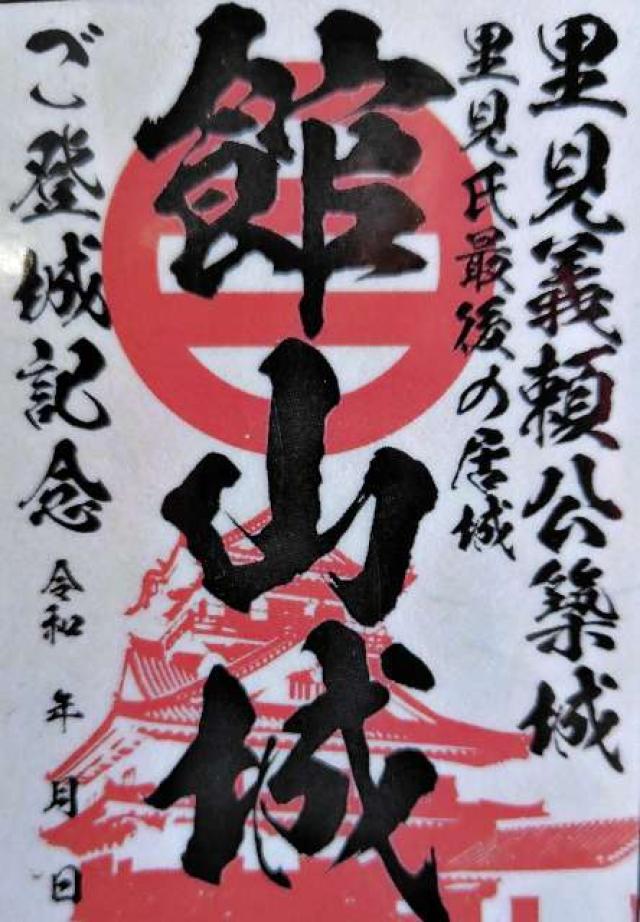 里見義頼公築城
里見氏最後の居城
館山城
ご登城記念 令和 年 月 日